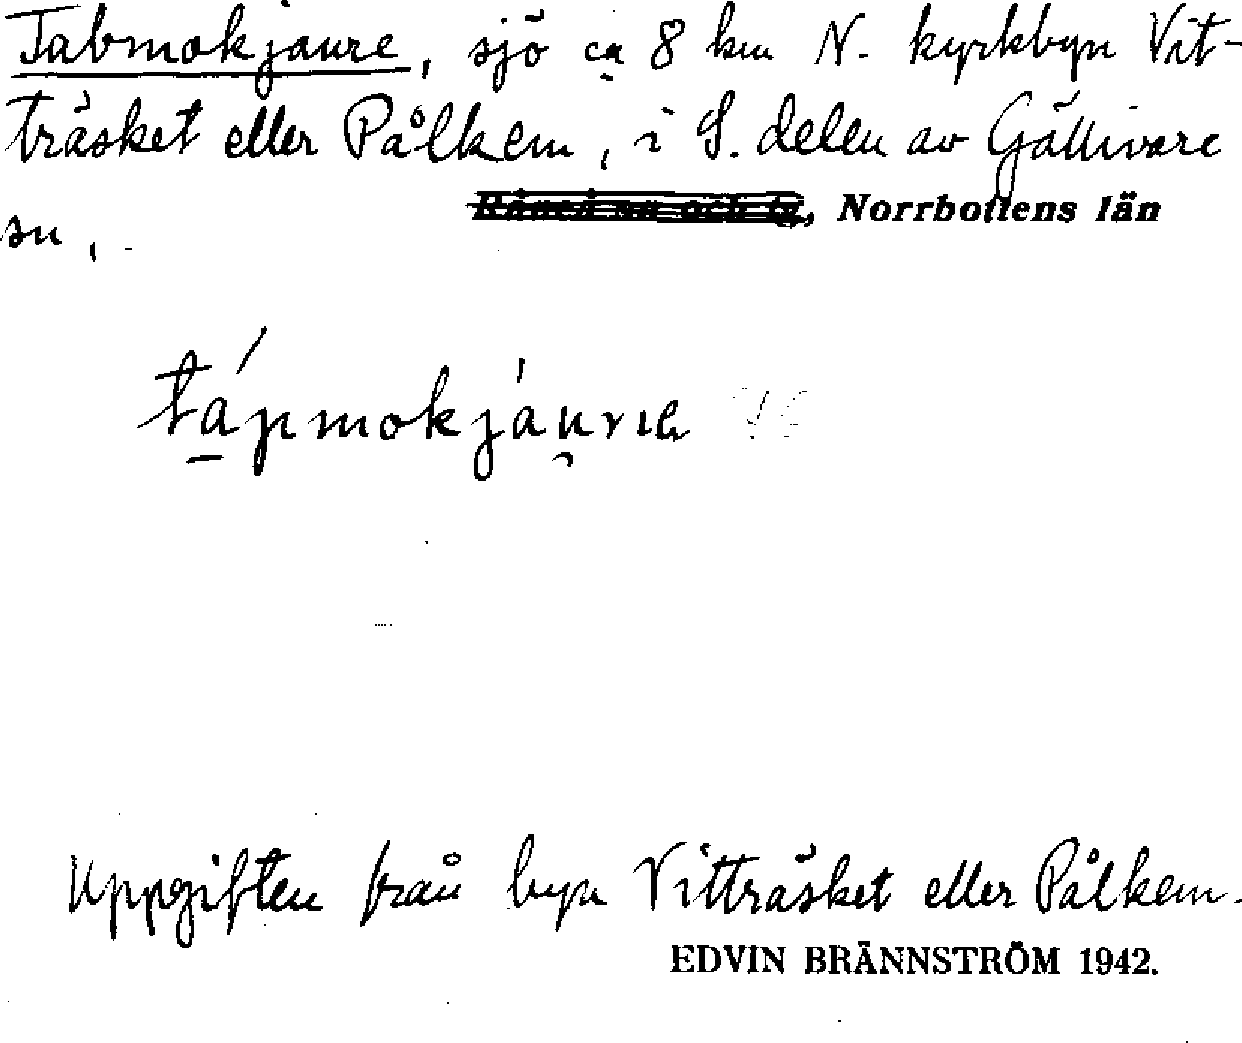 Tabmokjaure, sjö ca 8 km N. kyrkbyn Vit-
träsket eller Pålkem, i S. delen av Gällivare
sn, Råneå sn och tg, Norrbottens län
tápmokjáu̯rıe
Uppgiften från byn Vitträsket eller Pålkem.
EDVIN BRÄNNSTRÖM 1942.